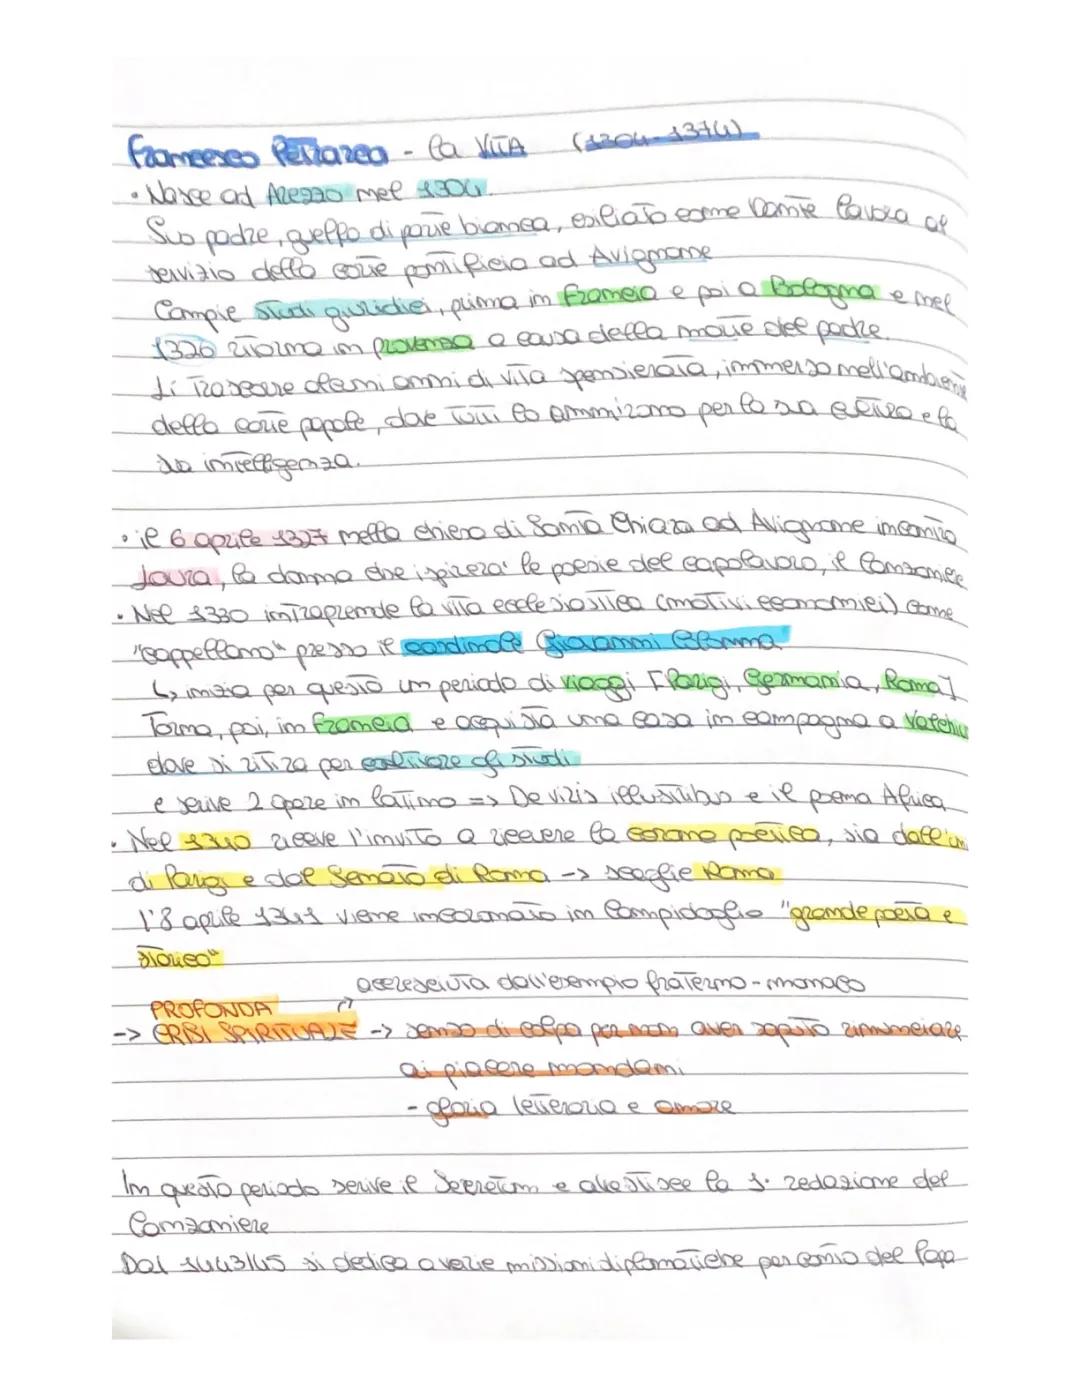 Francesco Petrarca - la VITA (1304-1374)
• Nasce ad Arezzo nel 1304.
Suo padre, guelfo di parte bianca, esiliato come Dante lavora al
servizio della corte pontificia ad Avignone
Compie studi giuridici, prima in Francia e poi a Bologna e nel
1326 ritorna in provenza a causa della morte del padre.
Lì trascorre alcuni anni di vita spensierata, immerso nell'ambiente
della corte papale, dove tutti lo ammirano per la sua e la
sua intelligenza.
• il 6 aprile 1327 nella chiesa di Santa Chiara ad Avignone incontra
Laura, la donna che ispirera' le poesie del capolavoro, il Canzoniere
• Nel 1330 intraprende la vita ecclesiastica (motivi economici) come
"cappellano" presso il cardinale Giovanni Colonna
↳ inizia per questo un periodo di viaggi [Parigi, Germania, Roma]
Torna, poi, in Francia e acquista una casa in campagna a Valchiu
dove si ritira per coltivare gli studi
e scrive 2 opere in latino => De viris illustribus e il poema Africa
• Nel 1340 riceve l'invito a ricevere la corona poetica, sia dall'un
di Parigi e dal Senato di Roma -> sceglie Roma
l'8 aprile 1341 viene incoronato in Campidoglio "grande poeta e
storico"
accresciuta dall'esempio fraterno - monaco
PROFONDA
-> CRISI SPIRITUALE -> senso di colpa per non aver saputo rinunciare
ai piacere mondani
- gloria letteraria e amore
In questo periodo scrive il Secretum e allestisce la 1. redazione del
Canzoniere
Dal 1443/45 si dedica a varie missioni diplomatiche per conto del Papa